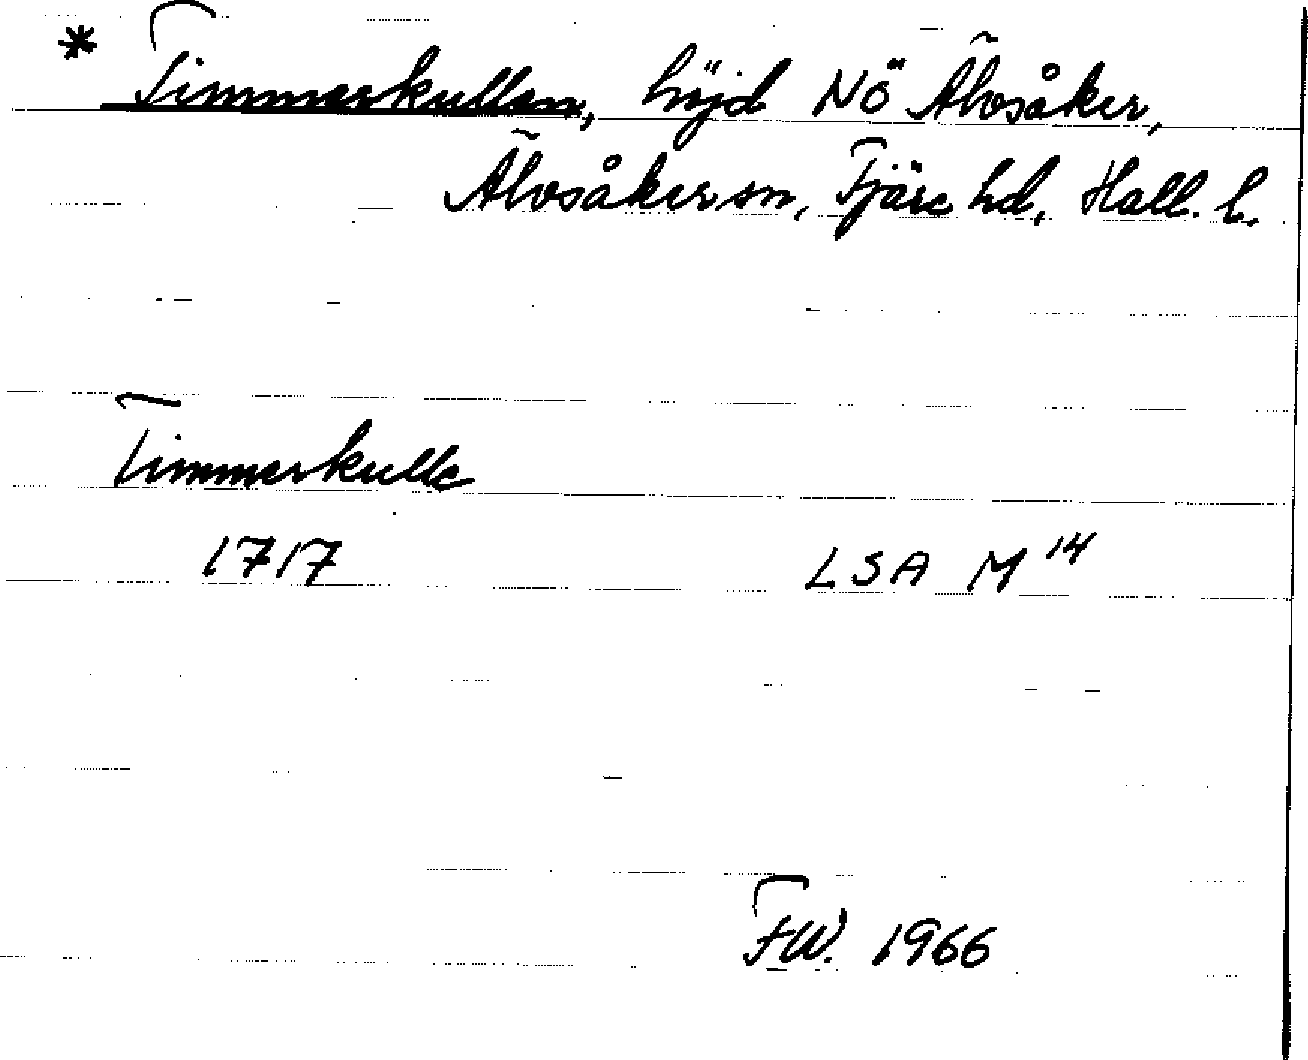 * Timmerkullen, höjd NÖ Älvsåker,
Älvsåker sn, Fjäre hd, Hall. l.
Timmerkulle
1717 LSA M 14
F.W. 1966